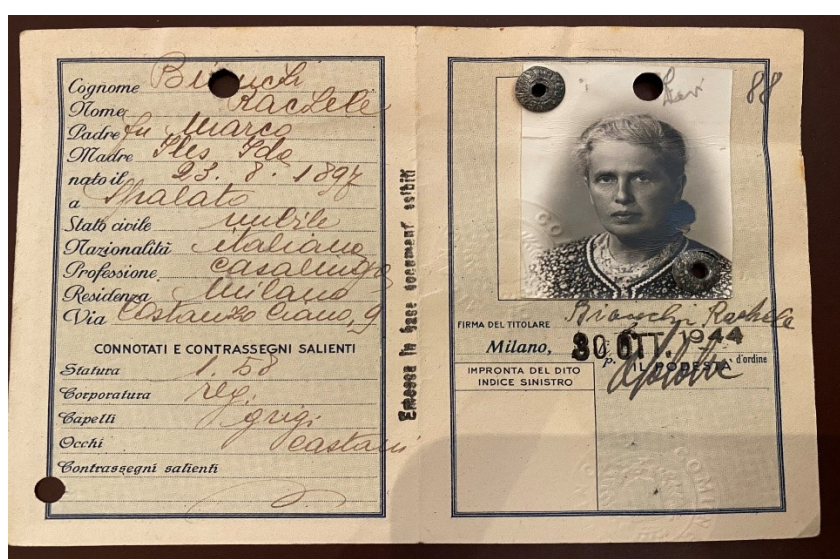 Cognome Bianchi
Nome Rachele
Padre fu Marco
Madre Iles Ida
nato il 23. 8. 1897
a Spalato
Stato civile nubile
Nazionalità italiana
Professione casalinga
Residenza Milano
Via Costanzo Ciano, 9
CONNOTATI E CONTRASSEGNI SALIENTI
Statura 1.58
Corporatura reg.
Capelli grigi
Occhi castani
Contrassegni salienti
Emessa in base document esibiti
88
FIRMA DEL TITOLARE Bianchi Rachele
Milano, 30 OTT 1944
p. IL PODESTÀ d'ordine
IMPRONTA DEL DITO
INDICE SINISTRO